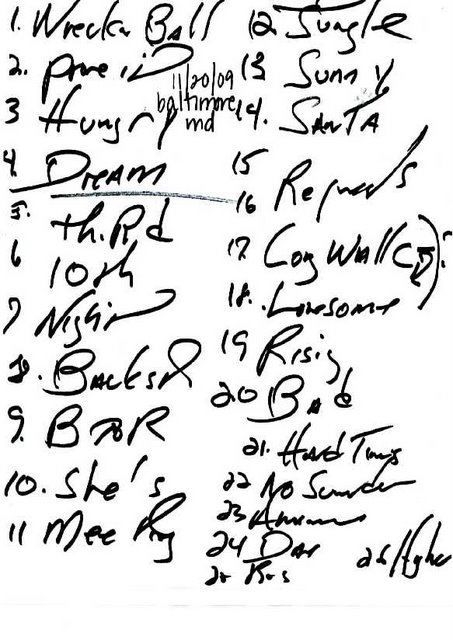 1. Wreckn Ball
2. Prove it
11/20/09
baltimore
md
3 Hungry
4. Dream
5. th.Rd
6 10th
7 Night
8. Backst
9. BTOR
10. She's
11 Mee
12. Jungle
13 Sunny
14. SANTA
15
16 Requests
17. Long Wall
18. Lonesome
19 Risig
20 Bad
21. Hard Times
22 No Surrender
23
24 Dan
25 Ros
26 Higher